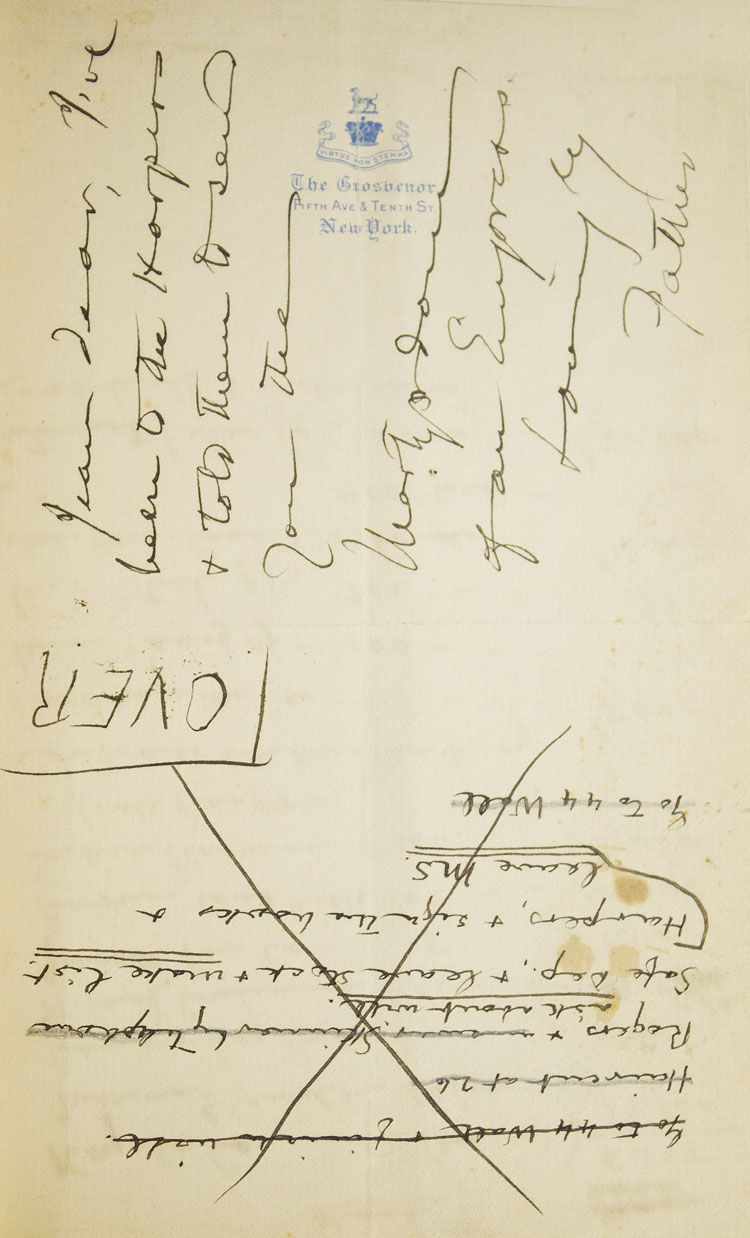 VIRTUS NON STEMMA
The Grosvenor,
FIFTH AVE & TENTH ST.
New York.
Jean dear, I've
been to the Harpers
& told them to send
you the
Martyrdom
of an Empress.
Lovingly
Father
OVER
Go to 44 Wall & finish will.
Haircut at 26
Rogers, & Skinner by telephone
ask about will.
Safe Dep., & leave stock & make list.
Harpers, & sign the books &
leave MS.
Go to 44 Wall